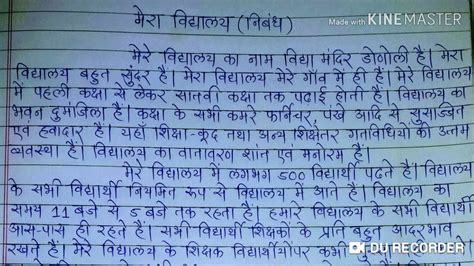 मेरा विद्यालय (निबंध)
Made with KINEMASTER
मेरे विद्यालय का नाम विद्या मंदिर डोगोली है। मेरा
विद्यालय बहुत सुंदर है। मेरा विद्यालय मेरे गाँव में ही है। मेरे विद्यालय
में पहली कक्षा से लेकर सातवी कक्षा तक पढाई होती है। विद्यालय का
भवन दुमंजिला है। कक्षा के सभी कमरे फर्निचर, पंखे आदि से सुसज्जित
एवं हवादार है। यहाँ शिक्षा-कूद तथा अन्य शिक्षेतर गतविधियों की उतम
व्यवस्था है। विद्यालय का वातावरण शांत एवं मनोरम है।
मेरे विद्यालय में लगभग 500 विद्यार्थी पढ़ते है। विद्यालय
के सभी विद्यार्थी नियमित रूप से विद्यालय में आते है। विद्यालय का
समय 11 बजे से 5 बजे तक रहता है। हमारे विद्यालय के सभी विद्यार्थी
आस-पास ही रहते है। सभी विद्यार्थी शिक्षकों के प्रति बहुत आदरभाव
रखते है। मेरे विद्यालय के शिक्षक विद्यार्थीयोंपर कभी
DU RECORDER